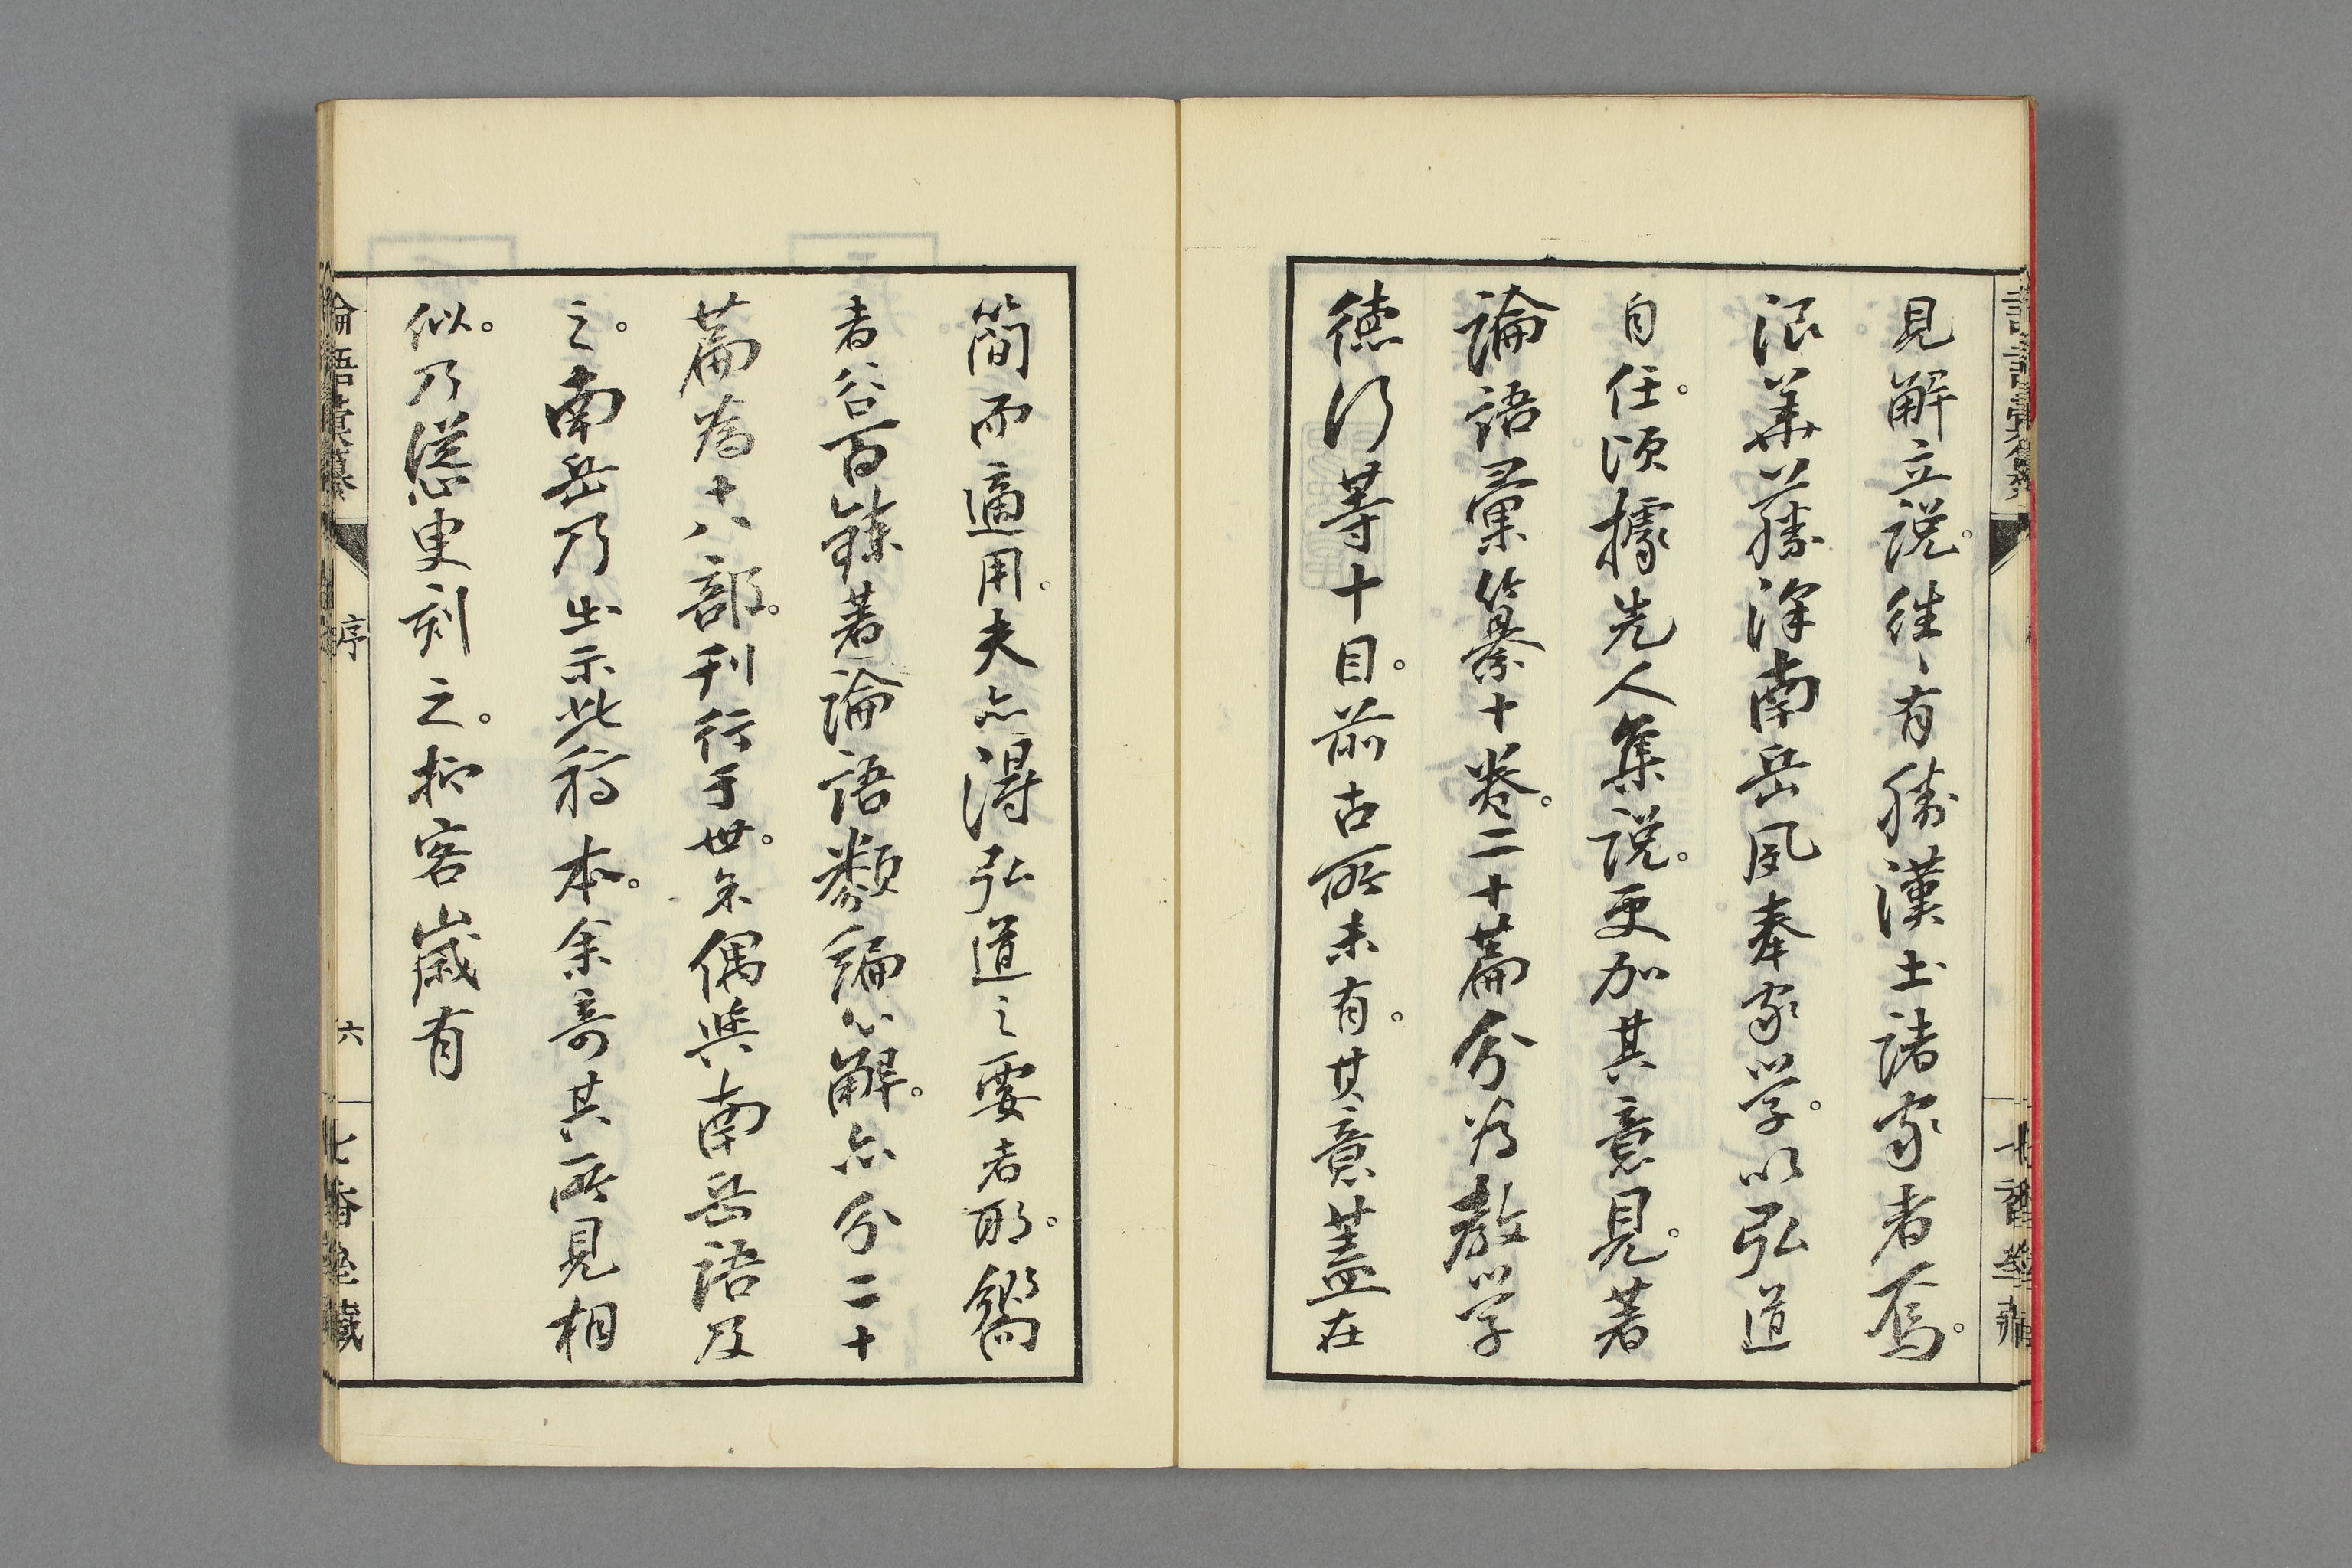 見解立説。往〻有勝漢土諸家者焉。
浪華藤澤南岳夙奉家学。以弘道
自任。頃據先人集説。更加其意見。著
論語彙纂十卷。二十篇分為教学
德行等十目。前古所未有。其意蓋在
簡而適用。夫亦得弘道之要者耶。嚮
者谷百鍊著論語類編心解。亦分二十
篇為十八部。刊行于世。余偶與南岳語及
之。南岳乃出示此稿本。余奇其所見相
似。乃慫更刻之。抑客歲有
論語彙纂
序
六
七香齋藏